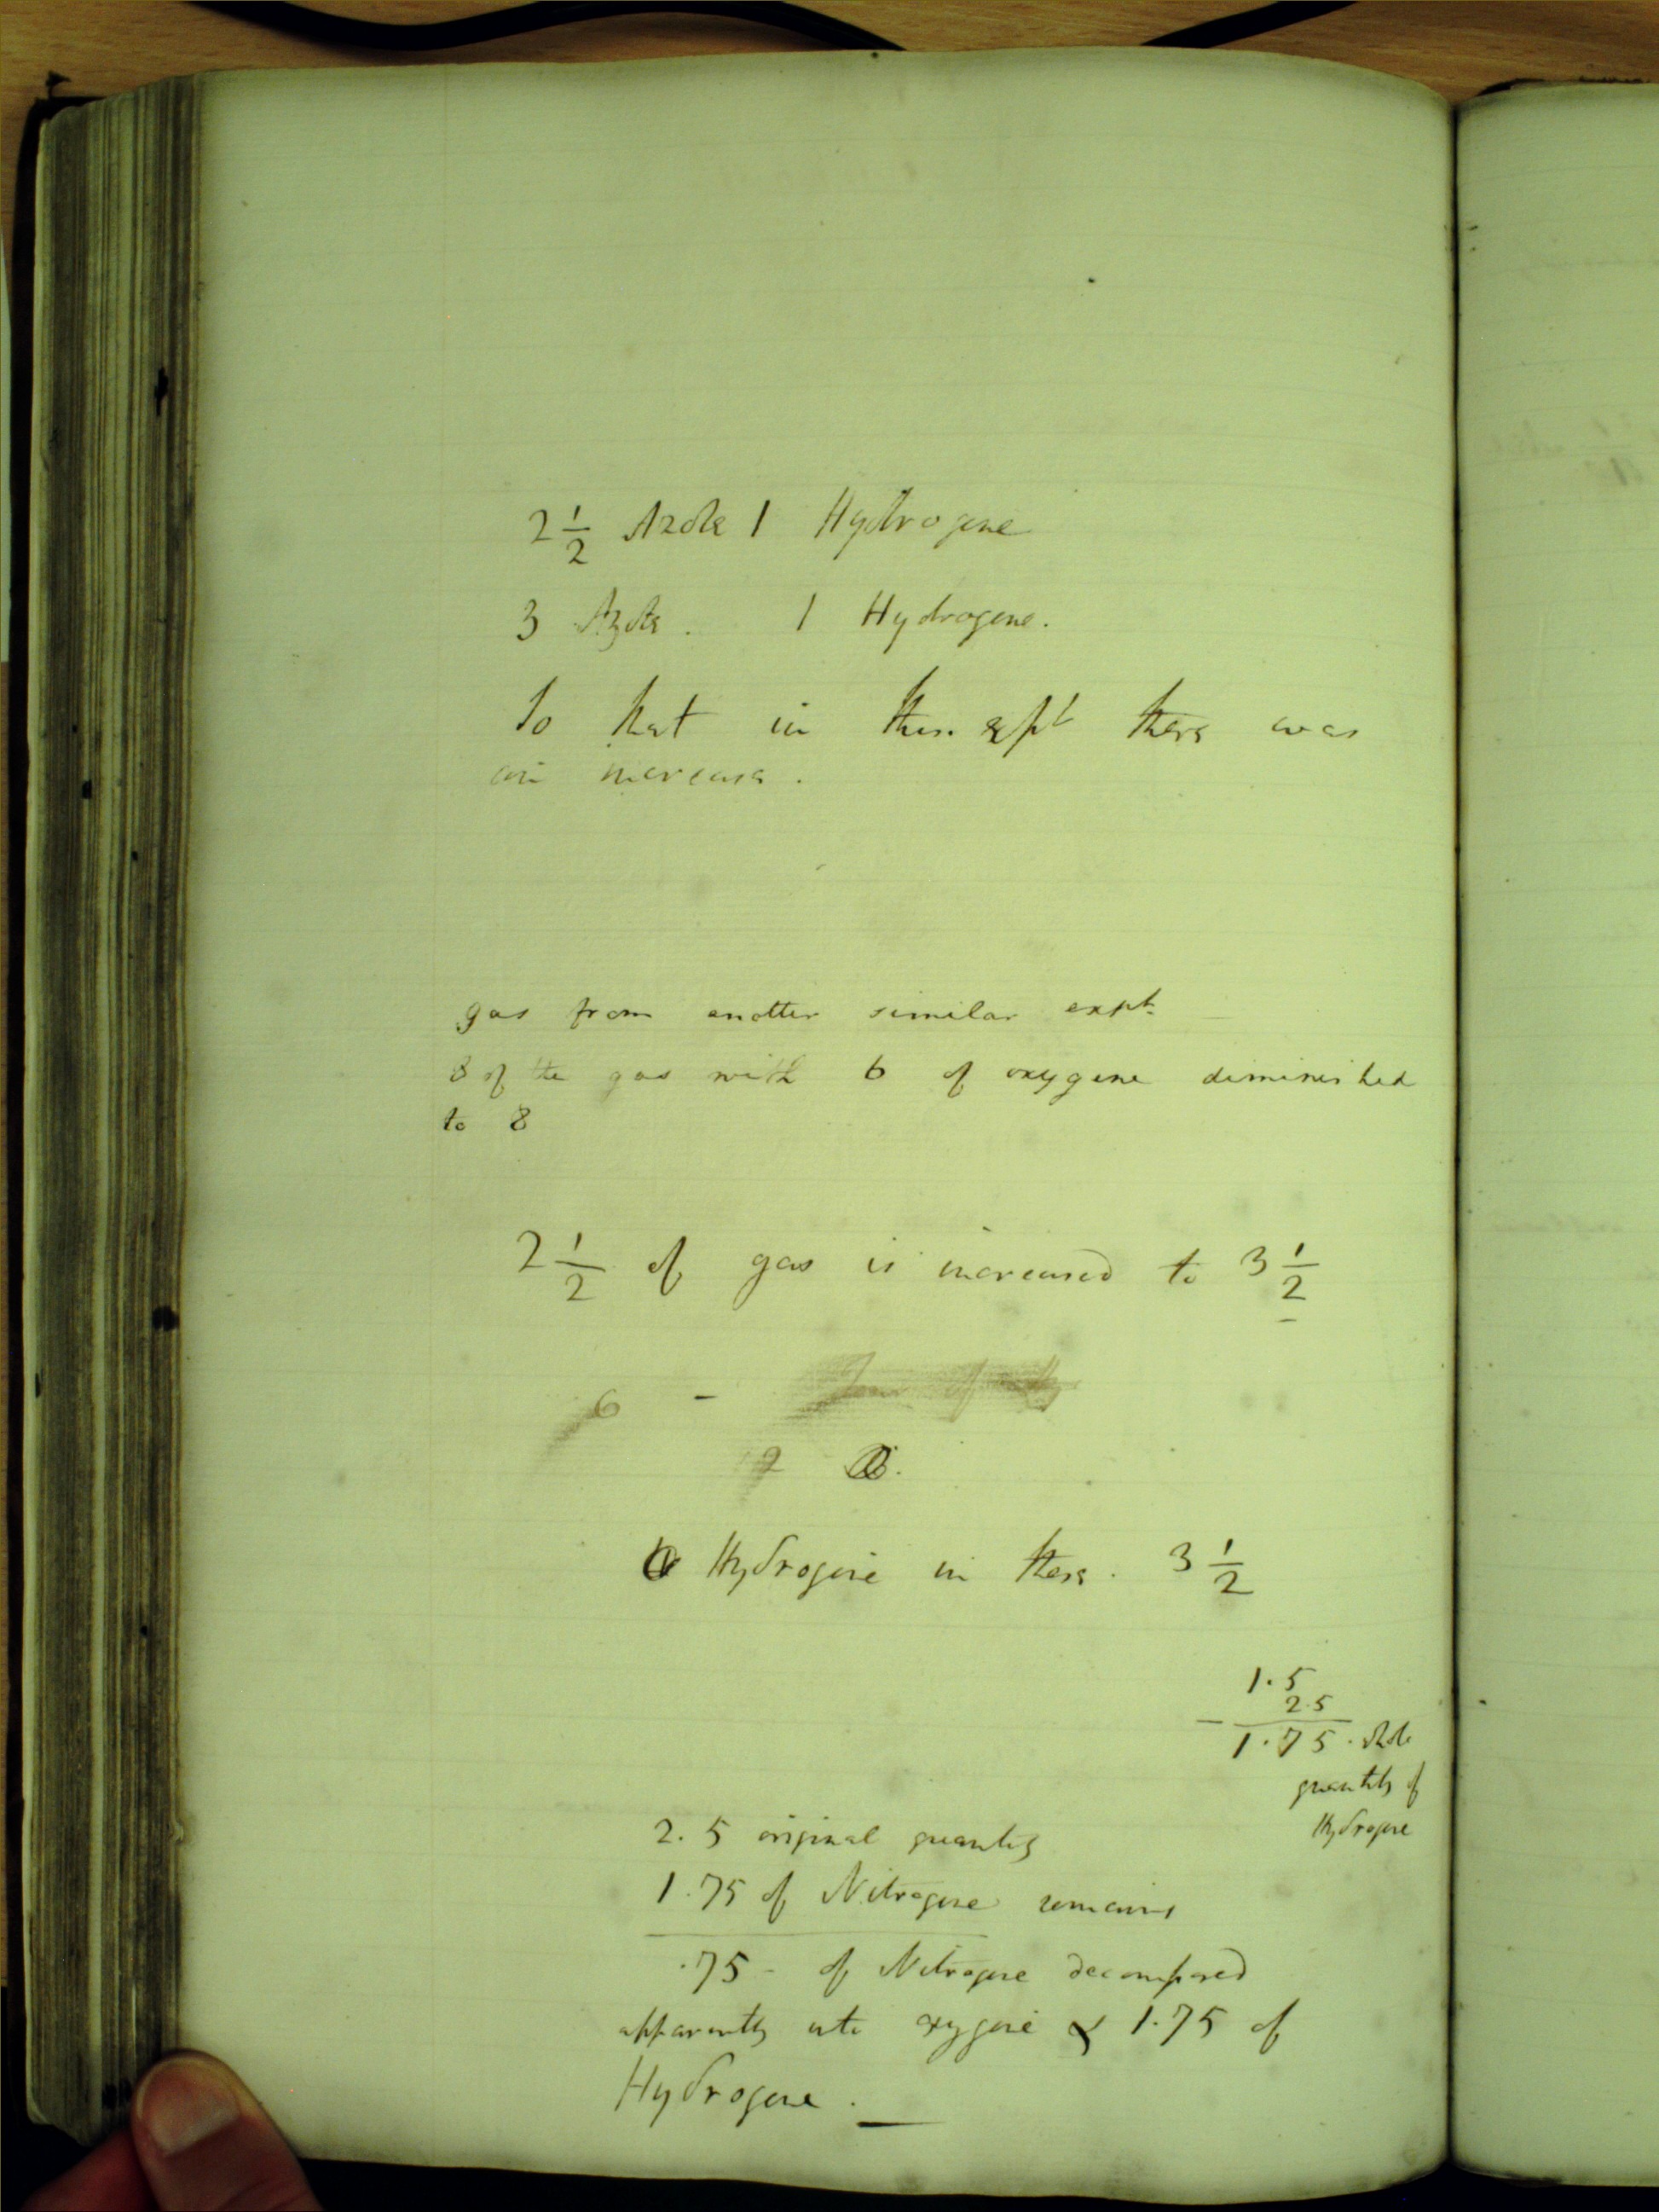 2 1/2 Azote 1 Hydrogene
3 Azote. 1 Hydrogene.
So that in this expt there was
an increase.
gas from another similar expt.
8 of the gas with 6 of oxygene diminished
to 8
2 1/2 of gas is increased to 3 1/2
6 -
2
Hydrogene in these. 3 1/2
1.5
25
1.75.
quantity of
Hydrogene
2.5 original quantity
1.75 of Nitrogene remains
.75 - of Nitrogene decomposed
apparently into oxygene & 1.75 of
Hydrogene.